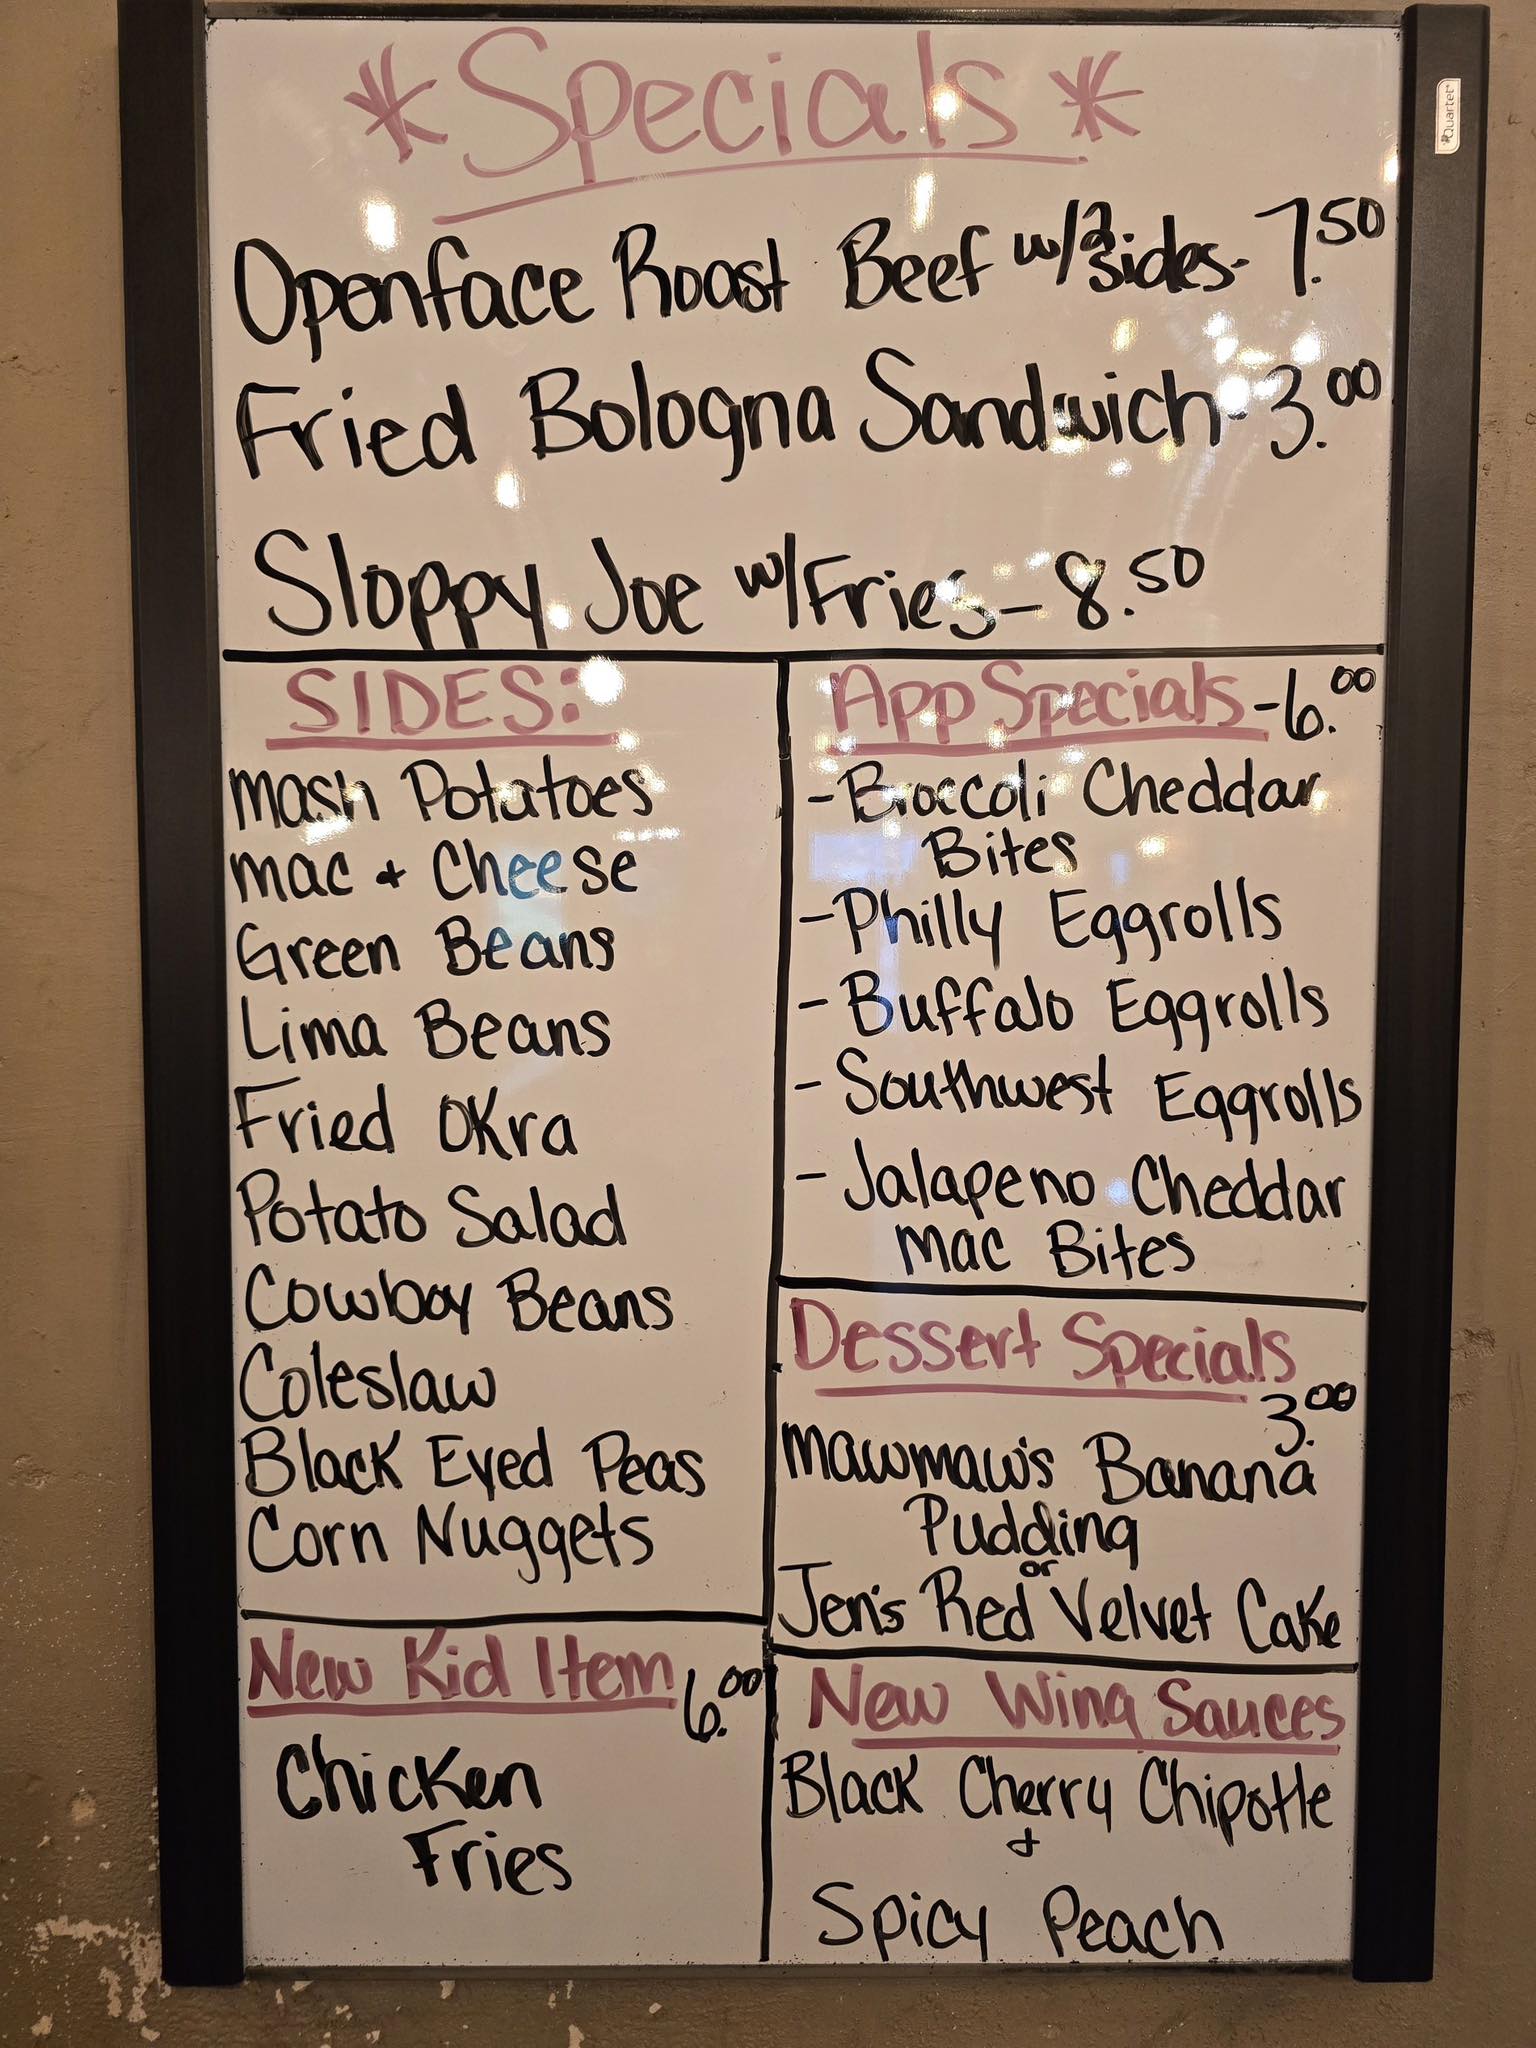 *Specials*
Openface Roast Beef w/2 sides- 7.50
Fried Bologna Sandwich- 3.00
Sloppy Joe w/Fries- 8.50
SIDES:
Mash Potatoes
Mac + Cheese
Green Beans
Lima Beans
Fried Okra
Potato Salad
Cowboy Beans
Coleslaw
Black Eyed Peas
Corn Nuggets
New Kid Item 6.00
Chicken
Fries
App Specials -6.00
-Broccoli Cheddar
Bites
-Philly Eggrolls
-Buffalo Eggrolls
-Southwest Eggrolls
-Jalapeno Cheddar
Mac Bites
Dessert Specials
3.00
Mawmaw's Banana
Pudding
or
Jen's Red Velvet Cake
New Wing Sauces
Black Cherry Chipotle
+
Spicy Peach
Quartet